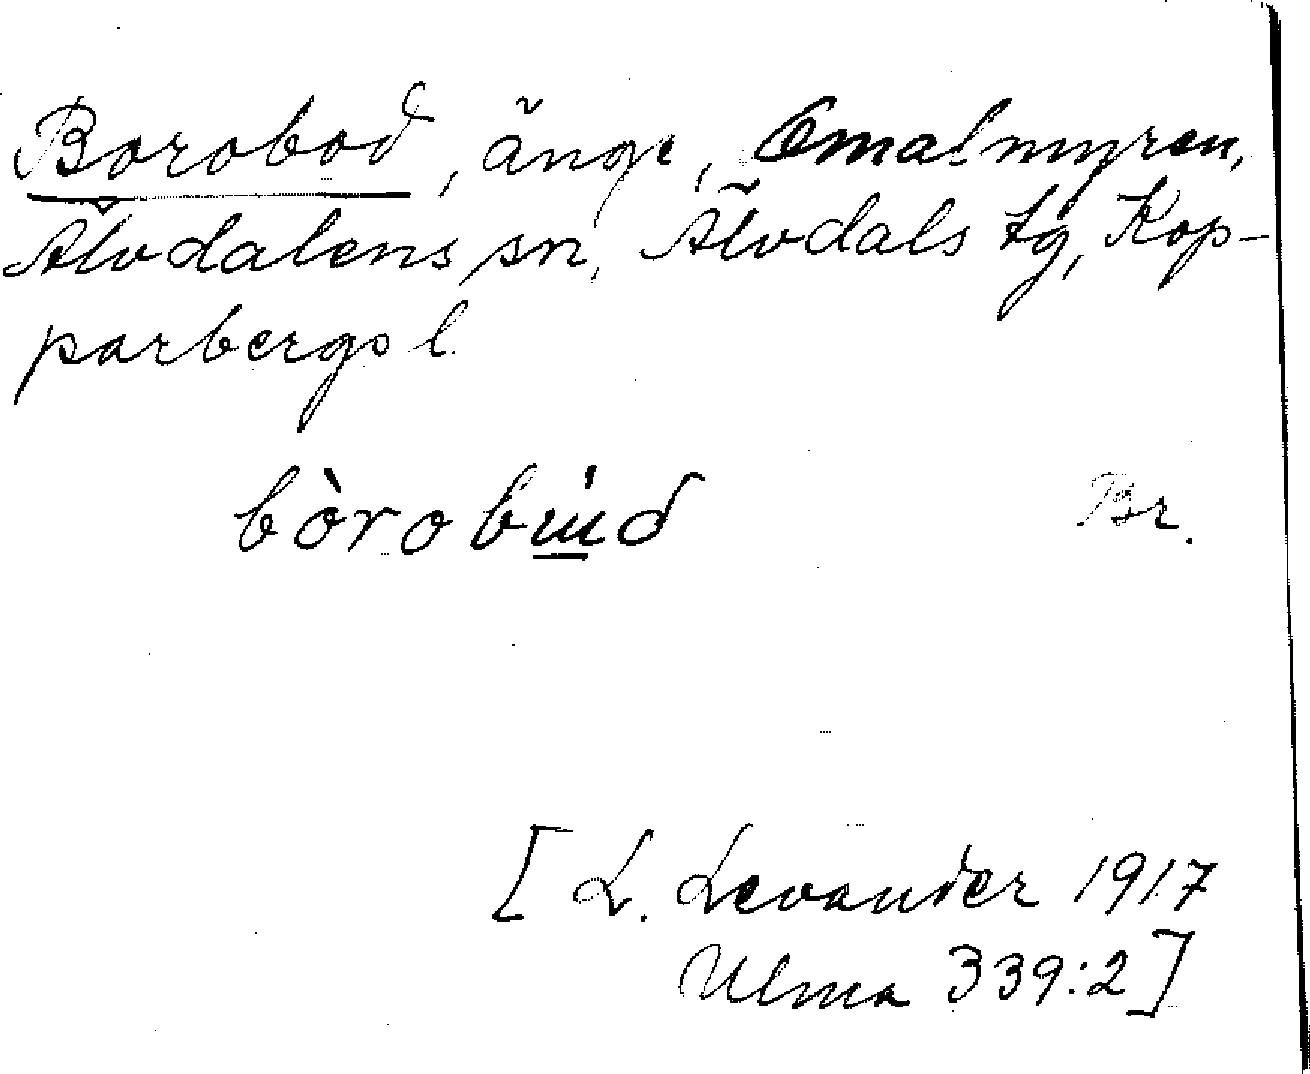 Borobod, änge, Emalmyren,
Älvdalens sn, Älvdals tg, Kop-
parbergs l.
bòrobu̲̍d Br.
[L. Levander 1917
Ulma 339:2]